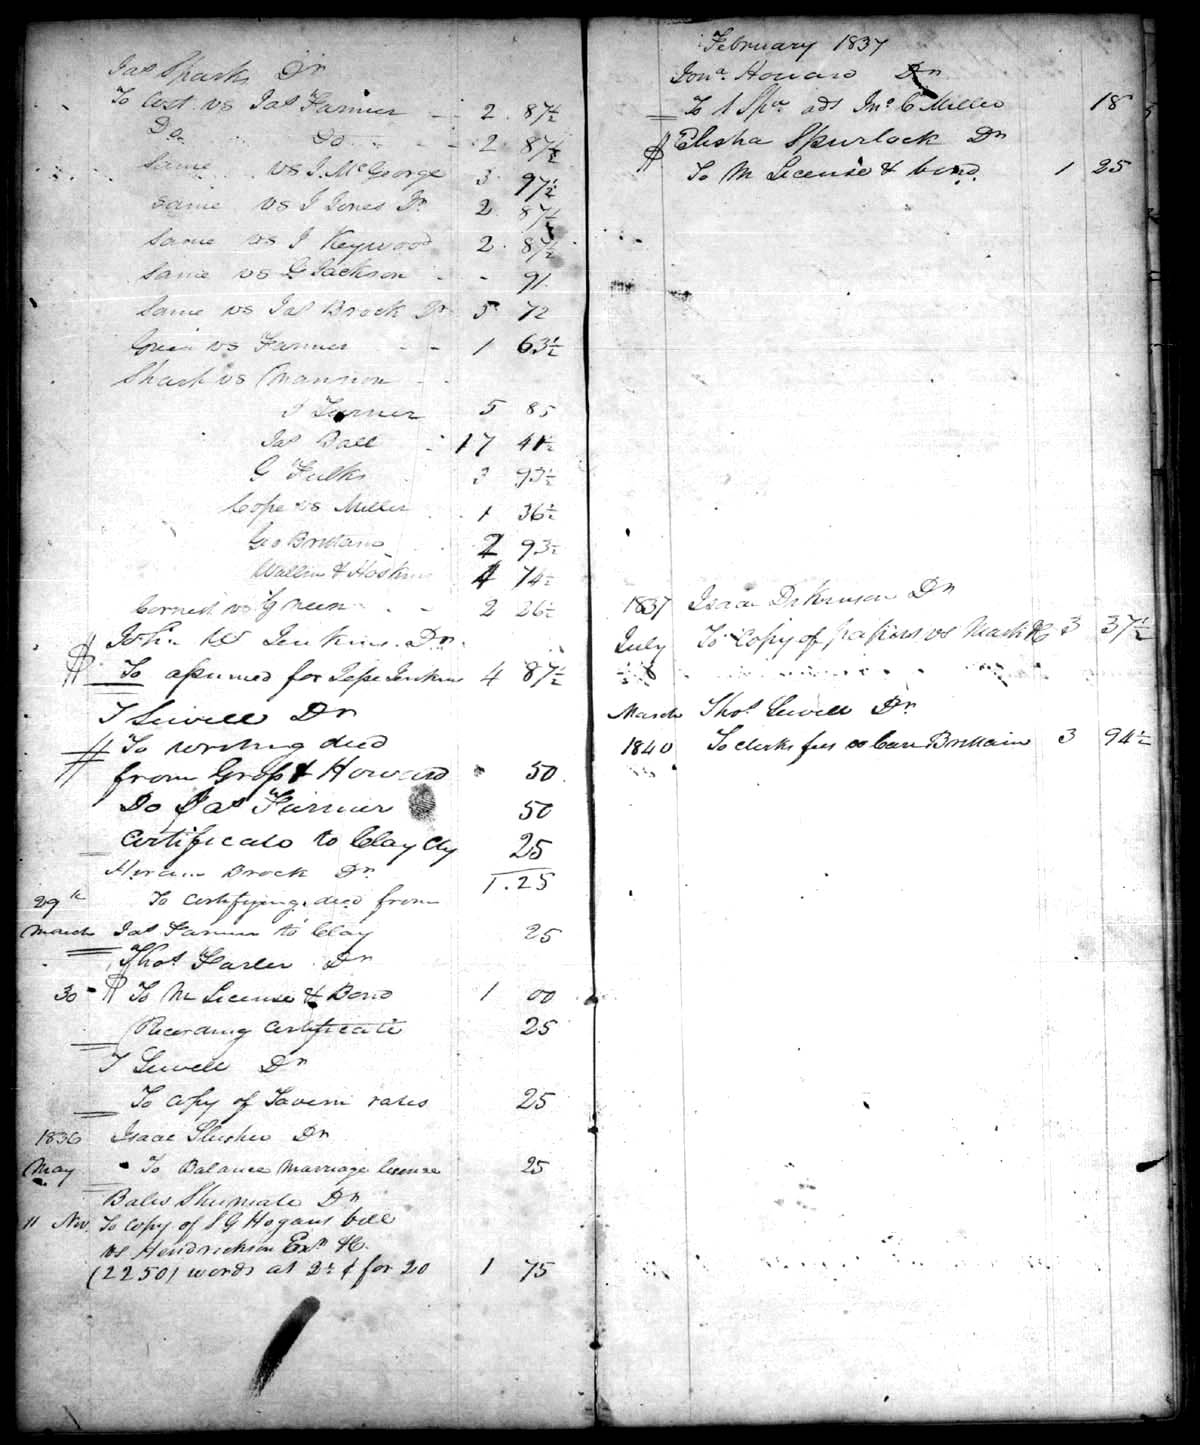 Jas Sparks Dr
To Cost vs Jas Farmer 2 87½
Do do 2 87½
Same vs J. McGeorge 3 97½
Same vs J Jones Dr 2 87½
Same vs J Keywood 2 87½
Same vs G Jackson 91
Same vs Jas Brock Dr 5 72
Green vs Farmer 1 63½
vs
J Turner 5 85
Jas Ball 17 41½
G Fulks 3 93½
Cope vs Miller 1 36½
Geo Brittain 2 93½
Wallin & Hoskins 4 74½
Cornett vs Green 2 26½
John W Jenkins Dr
To assumed for Jesse Jenkins 4 87½
T Sewell Dr
To writing deed
from Gross & Howard 50
Do Jas Farmer 50
Certificate to Clay Cty 25
1.25
Hiram Brock Dr
29th To certifying deed from
March Jas Farmer to Clay 25
Thos Farler Dr
30 To M License & Bond 1 00
Recording Certificate 25
T Sewell Dr
To copy of Tavern rates 25
1836 Isaac Slusher Dr
May To Balance Marriage license 25
Bales Shumate Dr
11 Nov. To Copy of S G Hogans bill
vs Hendrickson Exr &C.
(2250) words at 2½ ¢ for 20 1 75
February 1837
Jona. Howard Dr
To 1 Spa ads Jno C Miller 18
Elisha Spurlock Dr
To M License & bond 1 25
1837 Isaac Dickenson Dr
July To Copy of papers vs &C 3 37½
March Thos Sewell Dr
1840 To clerks fees vs Carr Brittain 3 94½